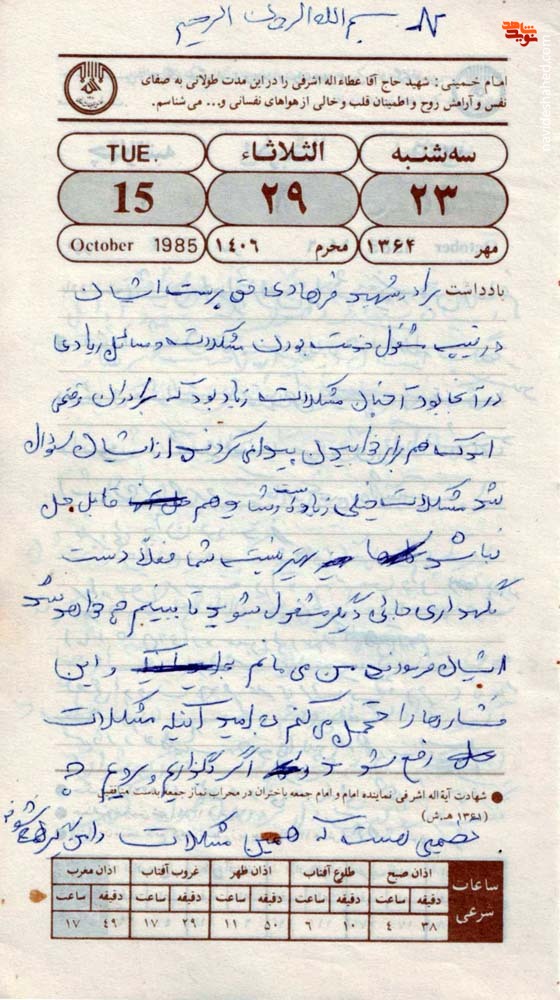 بسم الله الرحمن الرحیم
شاهد
نوید
امام خمینی: شهید حاج آقا عطاءاله اشرفی را در این مدت طولانی به صفای
نفس و آرامش روح و اطمینان قلب و خالی از هواهای نفسانی و... می شناسم.
سه شنبه
الثلاثاء
TUE.
۲۳
۲۹
15
مهر ۱۳۶۴
محرم ۱۴۰۶
October 1985
یادداشت برادر شهید فرهادی حق پرست ایشان
در تیپ مشغول خدمت بودن مشکلات و مسائل زیادی
در آنجا بود آنچنان مشکلات زیاد بود که برادران وقتی
اتوکت هم برای خوابیدن پیدا نمی کردند از ایشان سؤال
شد مشکلات خیلی زیاد است و شاید هم قابل حل
نباشد بهتر نیست شما فعلاً دست
نگهداری جائی دیگر مشغول شوید تا ببینم چه خواهد شد
ایشان فرمودند من می مانم و این
فشارها را تحمل می کنم به امید آنکه مشکلات
رفع شود اگر بگذاریم و برویم چه
شهادت آیة اله اشرفی نماینده امام و امام جمعه باختران در محراب نماز جمعه بدست منافقین
(۱۳۶۱ ه‍.ش)
تضمینی هست که همین مشکلات
ساعات شرعی
اذان صبح
طلوع آفتاب
اذان ظهر
غروب آفتاب
اذان مغرب
دقیقه ساعت دقیقه ساعت دقیقه ساعت دقیقه ساعت دقیقه ساعت
۳۸ ۴ ۱۰ ۶ ۵۰ ۱۱ ۲۹ ۱۷ ۴۹ ۱۷